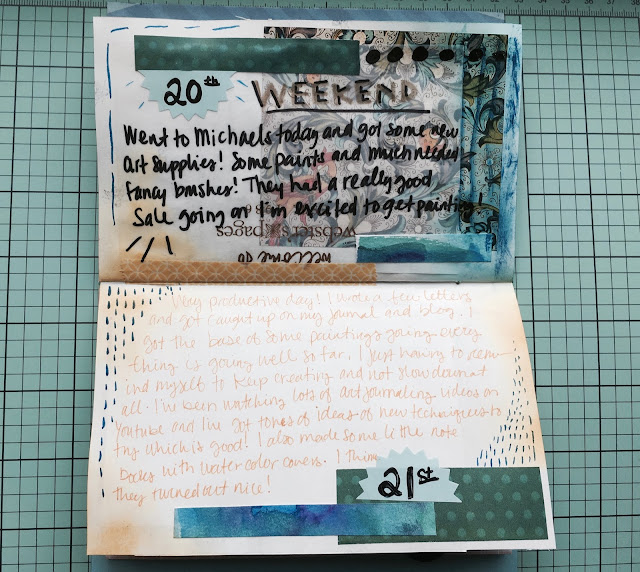 20th
WEEKEND
Went to Michaels today and got some new
art supplies! Some paints and much needed
fancy brushes! They had a really good
Sale going on I'm excited to get painting
webster's pages
Very productive day! I wrote a few letters
and got caught up on my journal and blog. I
got the base of some paintings going every
thing is going well so far. I just having to rem-
ind myself to keep creating and not slow down at
all. I've been watching lots of art journaling videos on
Youtube and I've got tons of ideas of new techniques to
try which is good! I also made some little note
books with watercolor covers. I think
they turned out nice!
21st